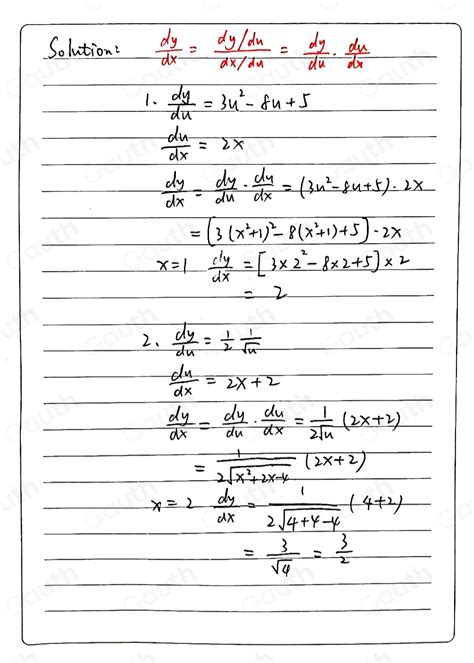 Solution: dy/dx = (dy/du)/(dx/du) = dy/du · du/dx
1. dy/du = 3u² - 8u + 5
du/dx = 2x
dy/dx = dy/du · du/dx = (3u² - 8u + 5) · 2x
= [3(x²+1)² - 8(x²+1) + 5] · 2x
x=1 dy/dx = [3×2² - 8×2 + 5] × 2
= 2
2. dy/du = 1/2 1/√u
du/dx = 2x + 2
dy/dx = dy/du · du/dx = 1/(2√u) (2x+2)
= 1/(2√(x²+2x-4)) (2x+2)
x = 2 dy/dx = 1/(2√(4+4-4)) (4+2)
= 3/√4 = 3/2